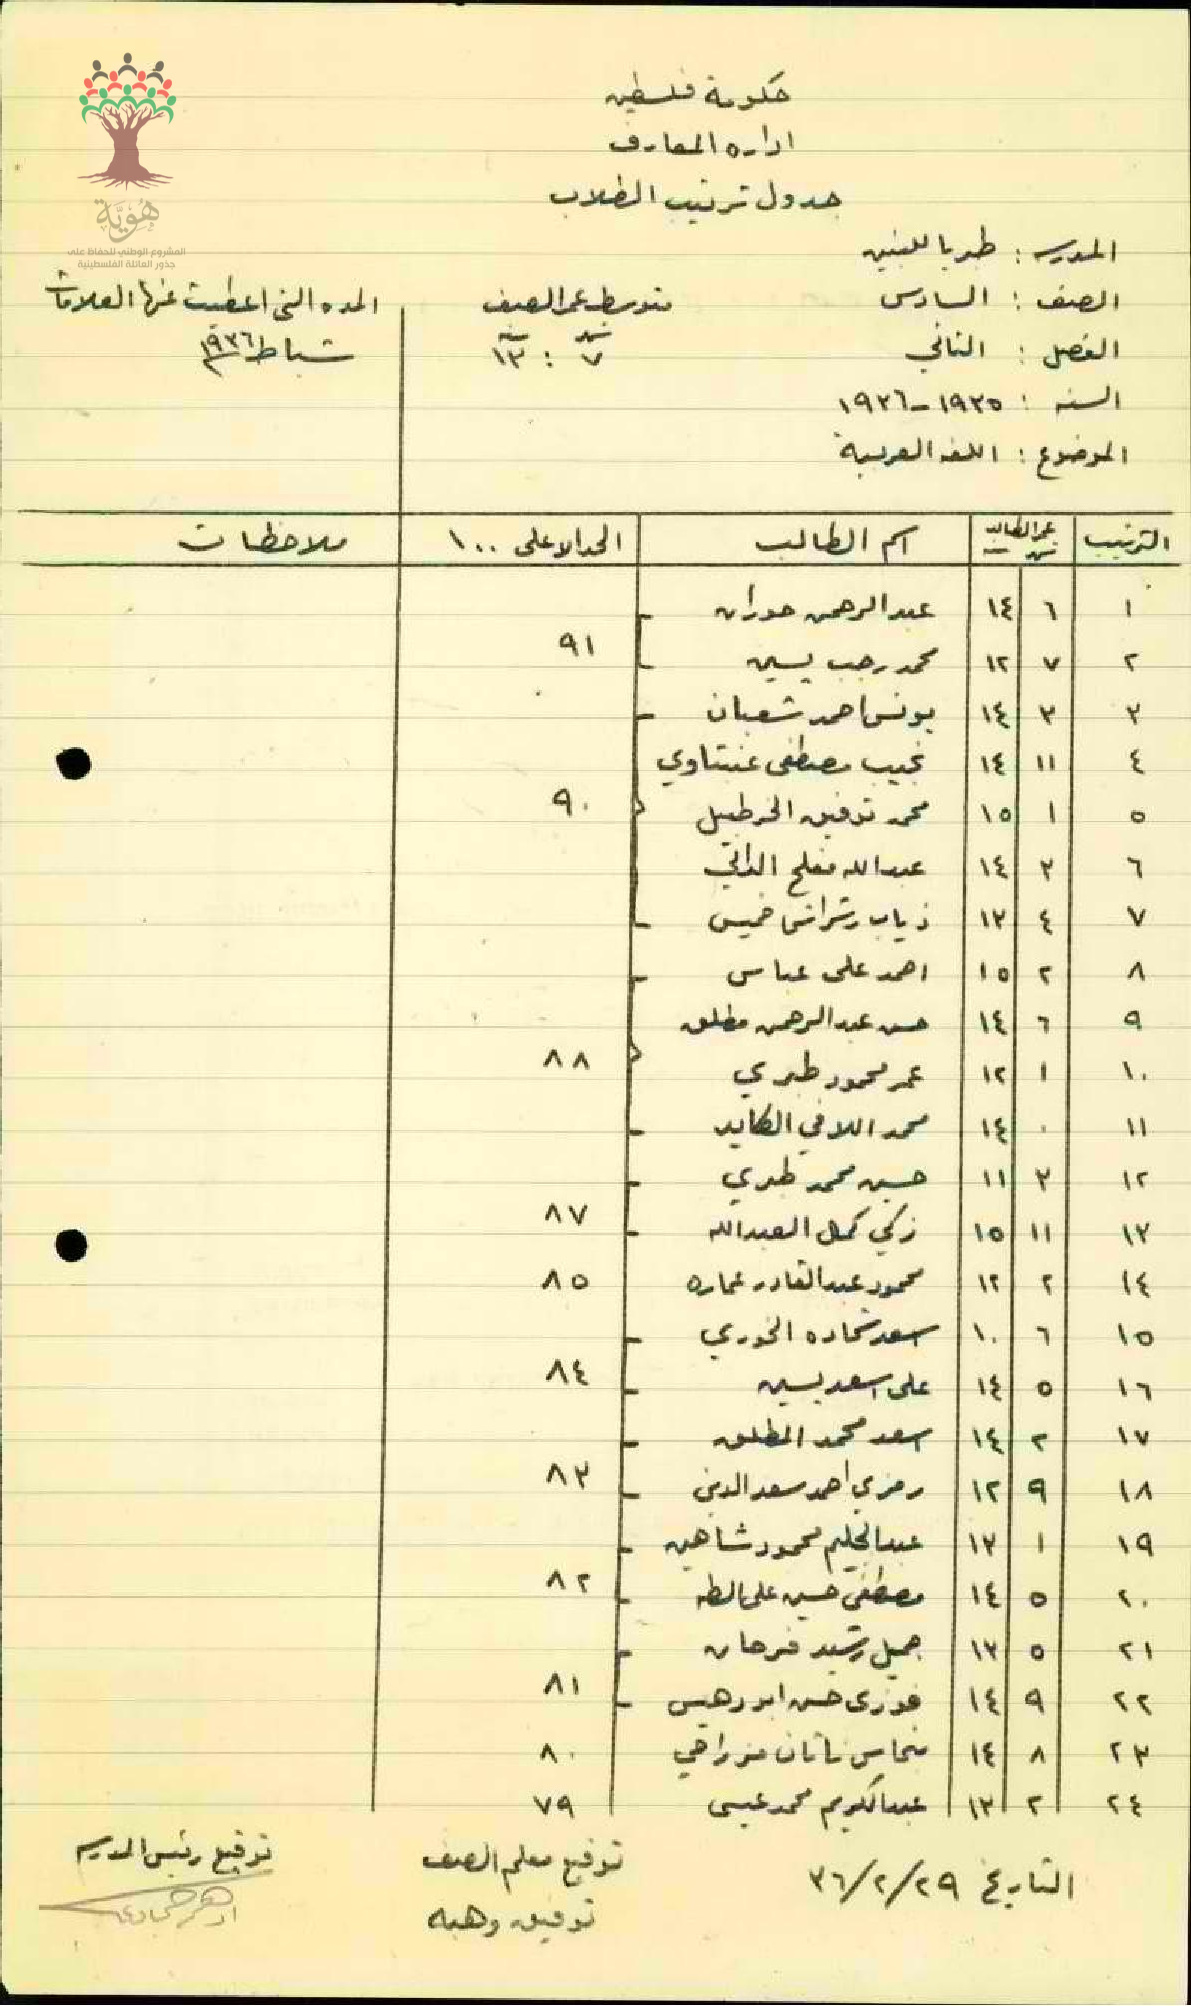 هُوِيَّة
المشروع الوطني للحفاظ على
جذور العائلة الفلسطينية
حكومة فلسطين
اداره المعارف
جدول ترتيب الطلاب
المدرسه : طبريا للبنين
الصف : السادس
الفصل : الثاني
السنه : ١٩٣٥-١٩٣٦
الموضوع : اللغه العربية
متوسط عمر الصف
٧ : ١٣
المده التي اعطيت عنها العلامات
شباط ١٩٣٦
الترتيب عمر الطالب اسم الطالب الحد الاعلى ١٠٠ ملاحظات
١ ٦ ١٤ عبد الرحمن حوران
٢ ٧ ١٢ محمد رجب يسين ٩١
٣ ٣ ١٤ يونس احمد شعبان
٤ ١١ ١٤ نجيب مصطفى عنبتاوي
٥ ١ ١٥ محمد توفيق الخرطبيل ٩٠
٦ ٣ ١٤ عبدالله مفلح
٧ ٤ ١٣ ذياب خميس
٨ ٢ ١٥ احمد على عباس
٩ ٦ ١٤ حسن عبد الرحمن مطلق
١٠ ١ ١٢ عمر محمود طبري ٨٨
١١ ٠ ١٤ محمد اللافي الكايد
١٢ ٣ ١١ حسين محمد طبري
١٣ ١١ ١٥ زكي كمال العبدالله ٨٧
١٤ ٢ ١٢ محمود عبد القادر عماره ٨٥
١٥ ٦ ١٠ اسعد شحاده الخوري
١٦ ٥ ١٤ على اسعد يسين ٨٤
١٧ ٢ ١٤ اسعد محمد المطلق
١٨ ٩ ١٢ رمزي احمد سعد الدين ٨٣
١٩ ١ ١٣ عبد الحليم محمود شاهين
٢٠ ٥ ١٤ مصطفى حسين على الطه ٨٢
٢١ ٥ ١٣ جميل رشيد فرحان
٢٢ ٩ ١٤ فوزى حسن ابو دهيس ٨١
٢٣ ٨ ١٤ منحاس ناتان مزراحي ٨٠
٢٤ ٢ ١٣ عبد الكريم محمد عيسى ٧٩
التاريخ ٣٦/٢/٢٩
توقيع معلم الصف
توفيق وهبه
توقيع رئيس المدرسه